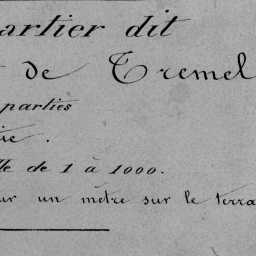 artier dit
de Tremel
parties
ie.
lle de 1 à 1000.
ur un mètre sur le terra